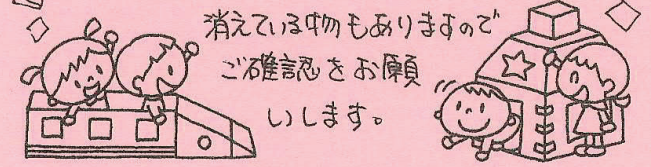 消えている物もありますので
ご確認をお願
いします。